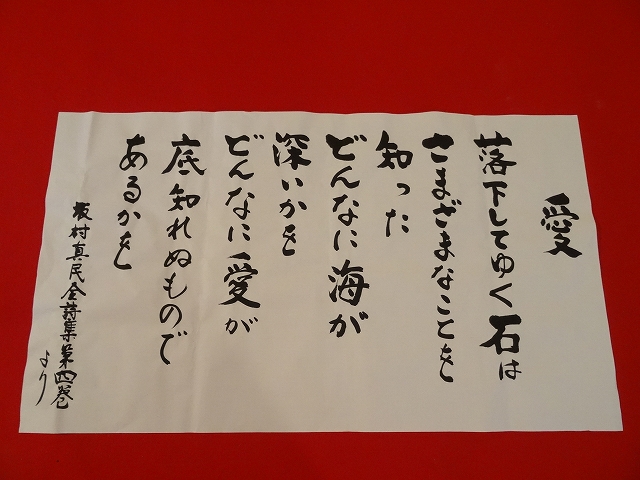 愛
落下してゆく石は
さまざまなことを
知った
どんなに海が
深いかを
どんなに愛が
底知れぬもので
あるかを
坂村真民全詩集第四巻
より